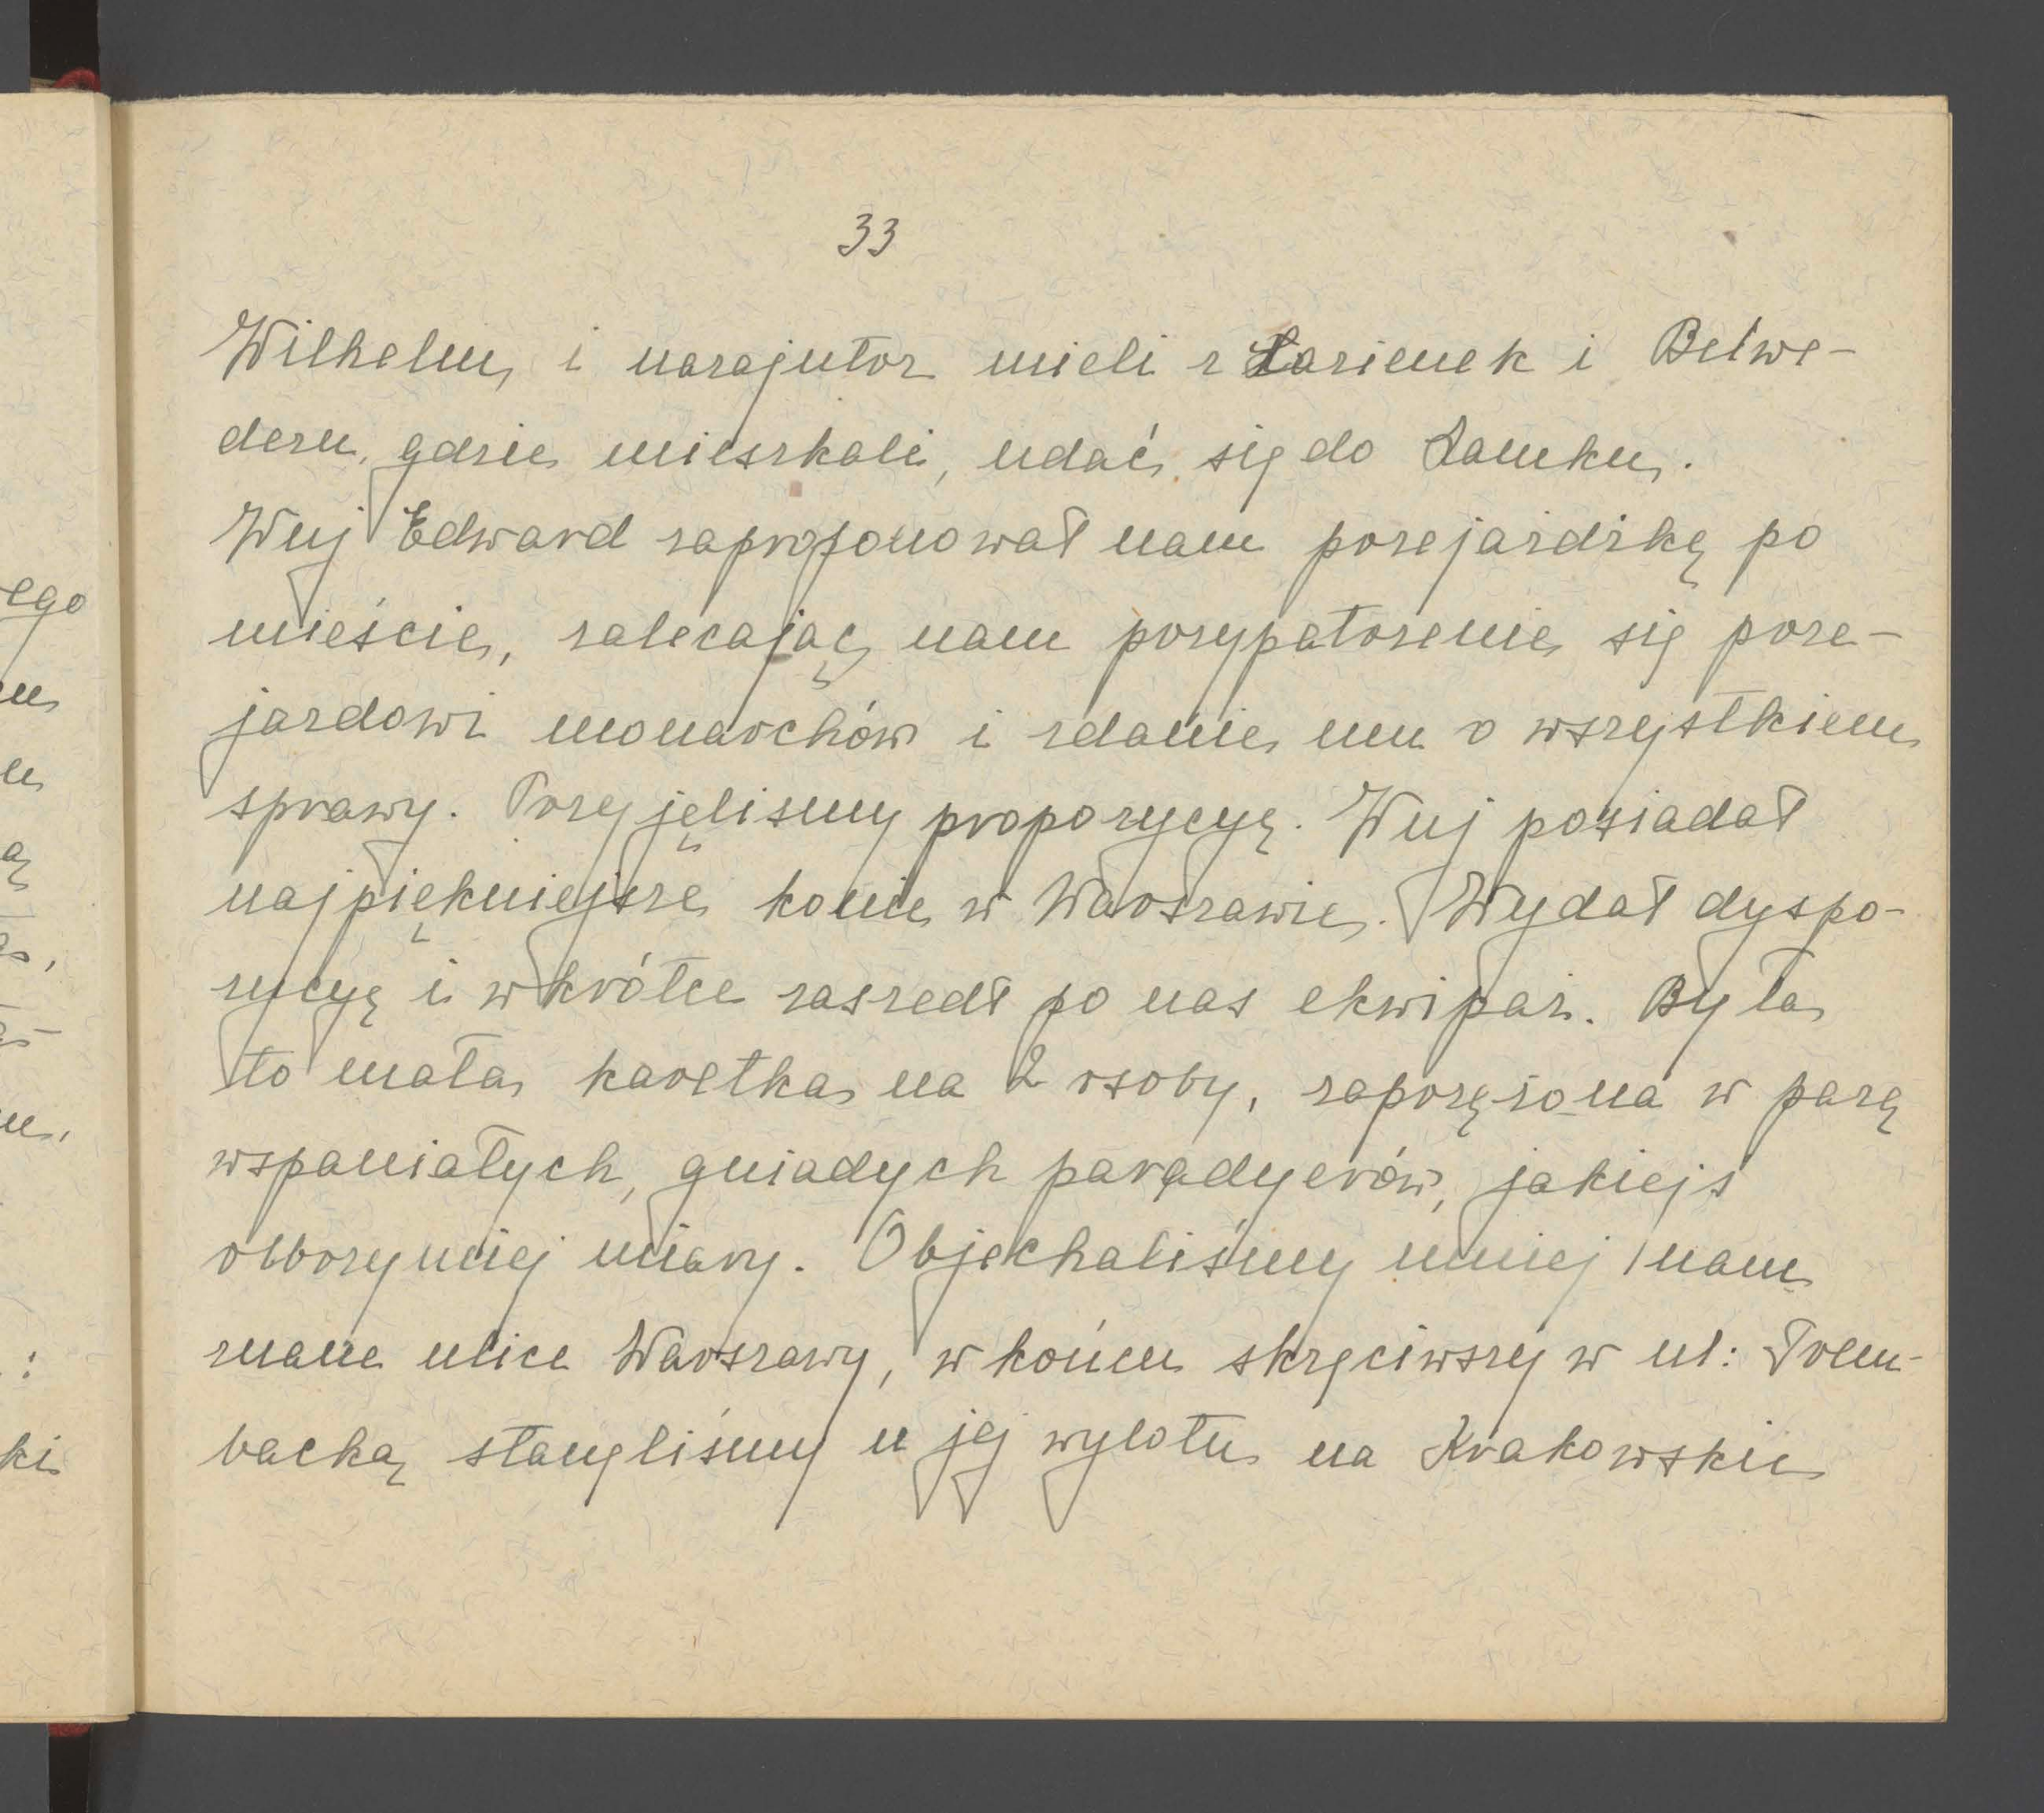 33
Wilhelm, i nazajutrz mieli z Łazienek i Belwe-
deru, gdzie mieszkali, udać się do Zamku.
Wuj Edward zaproponował nam przejażdżkę po
mieście, zalecając nam przypatrzenie się prze-
jazdowi monarchów i zdanie mu o wszystkiem
sprawy. Przyjęlismy propozycyę. Wuj posiadał
najpiękniejsze konie w Warszawie. Wydał dyspo-
zycyę i wkrótce zaszedł po nas ekwipaż. Była
to mała karetka na 2 osoby, zaprzężona w parę
wspaniałych, gniadych paradyerów, jakiejś
olbrzymiej miary. Objechaliśmy mniej nam
znane ulice Warszawy, w końcu skręciwszy w ul: Trem-
backą stanęliśmy u jej wylotu na Krakowskie
ego
ki